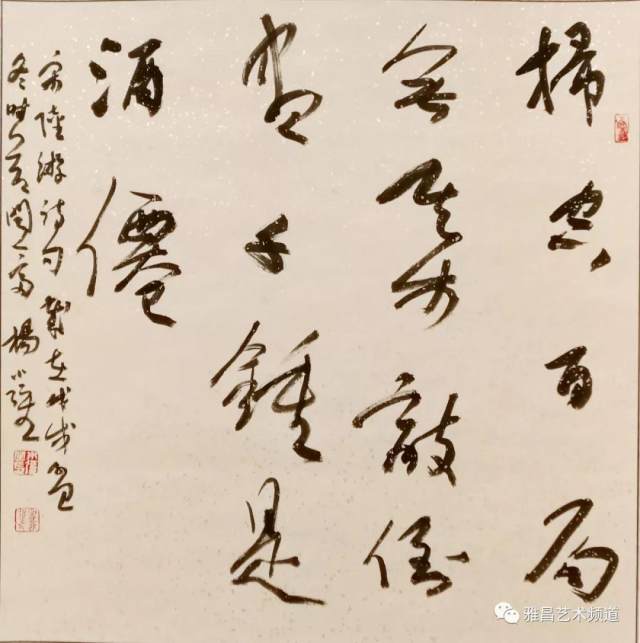 掃空百局
無棊敵倒
盡千鍾是
酒僊
宋陸游詩句 歲在戊戌
冬時 楊
雅昌艺术频道